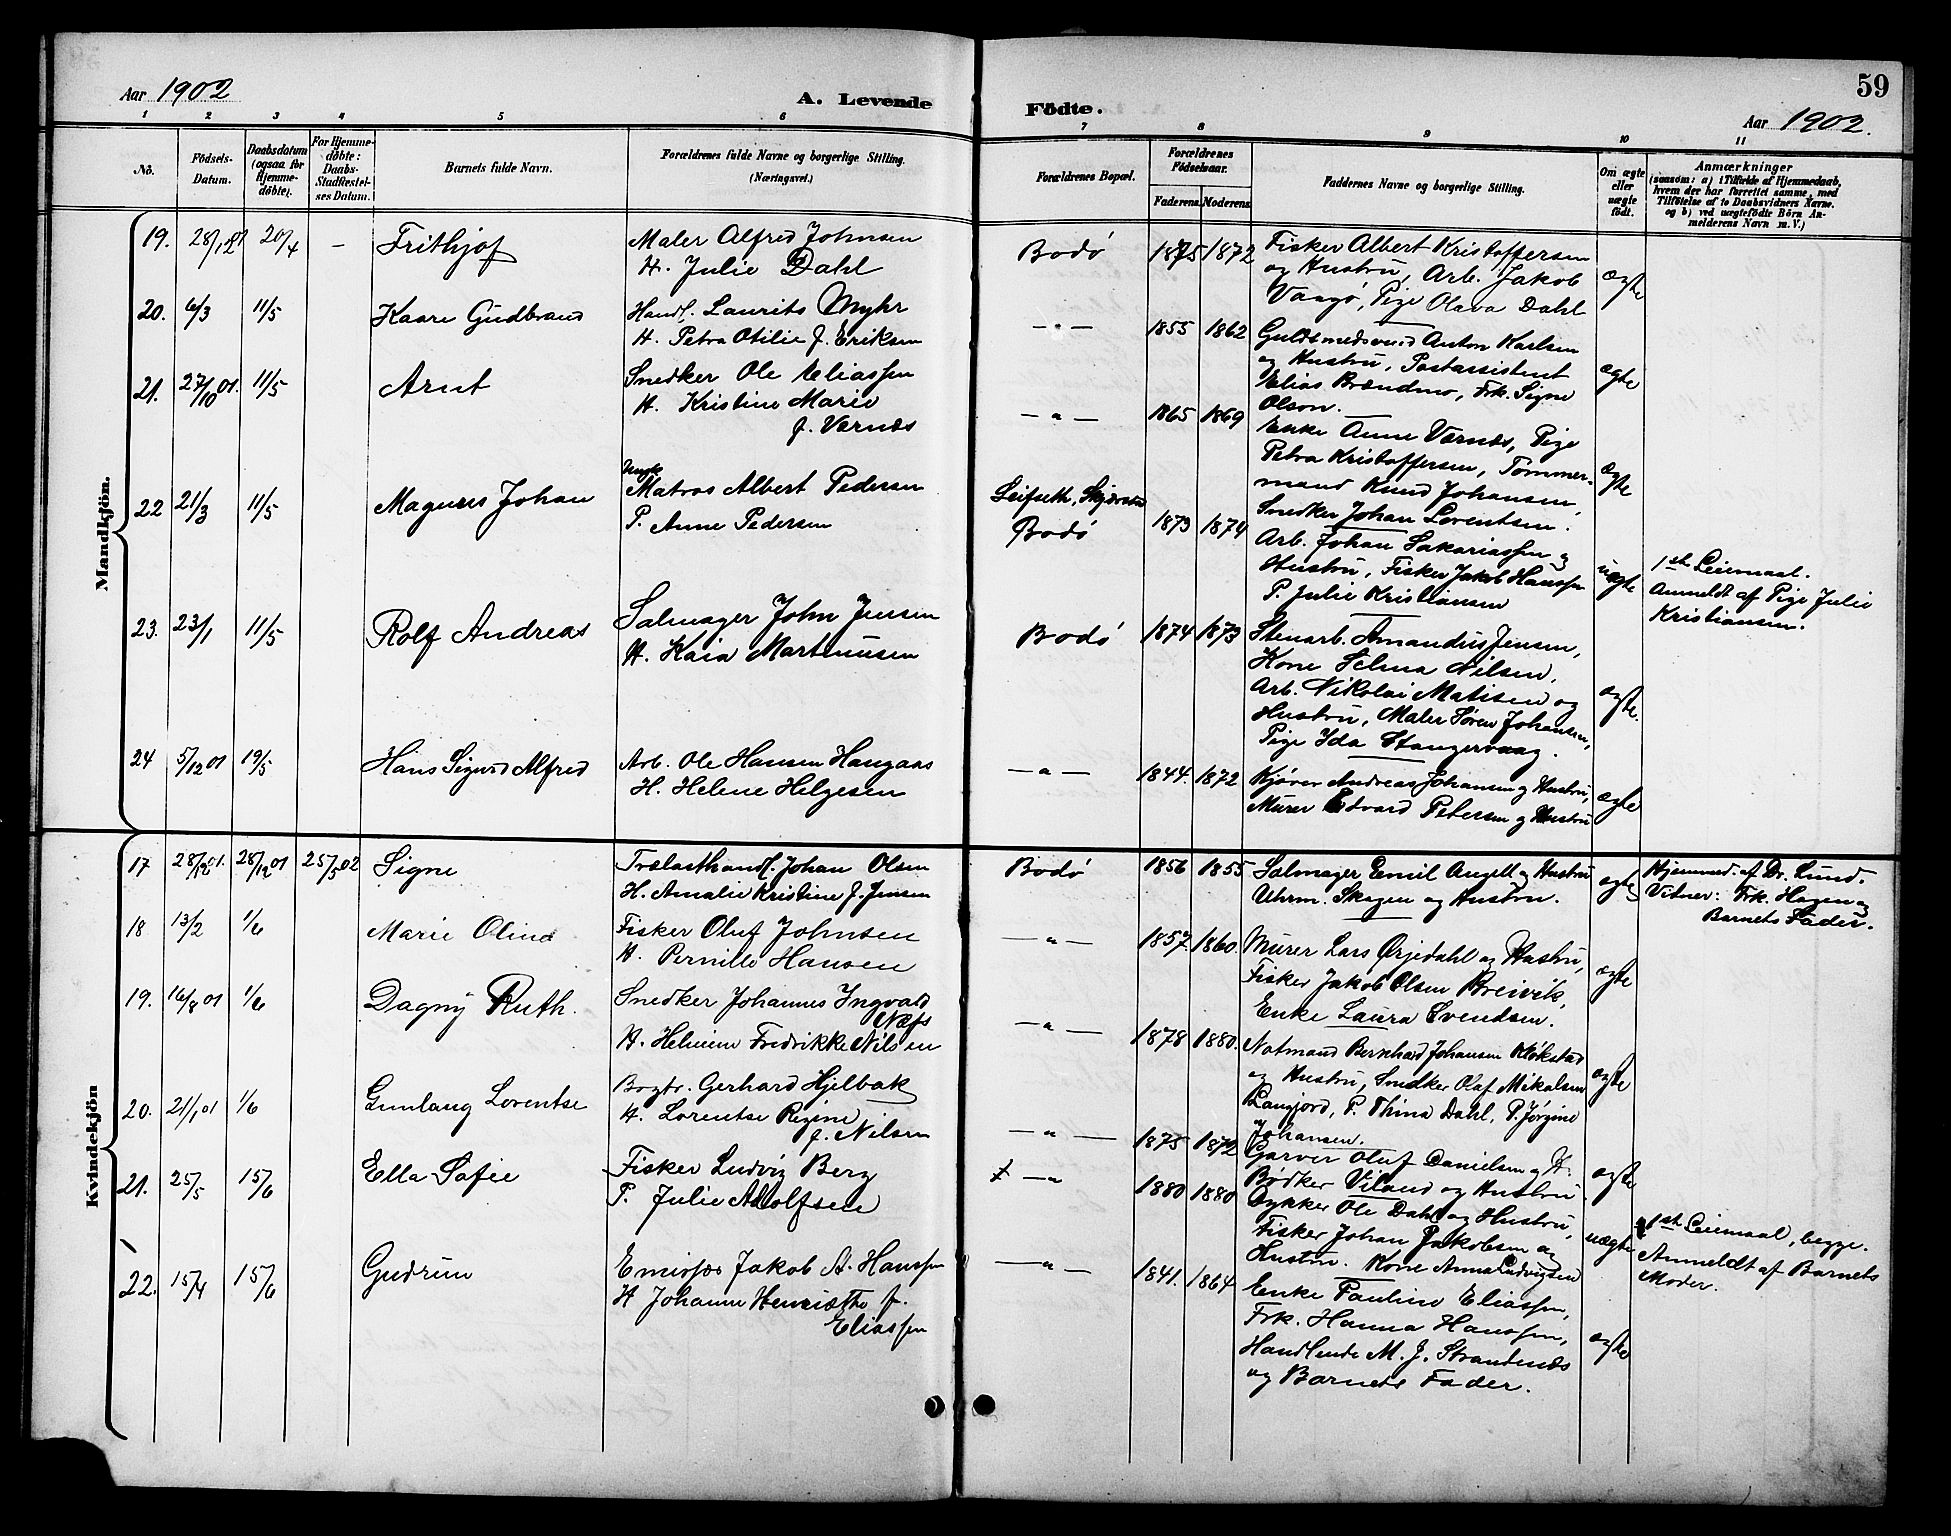 Aar 1902
A. Levende
Födte.
59
Aar 1902.
1 2 3 4 5 6 7 8 9 10 11
No.
Födsels-
Datum.
Daabsdatum
(ogsaa for
Hjemme-
döbte).
For Hjemme-
döbte:
Daabs-
Stadfæstel-
ses Datum.
Barnets fulde Navn.
Forældrenes fulde Navne og borgerlige Stilling.
(Næringsvei.)
Forældrenes Bopæl.
Forældrenes
Födselsaar.
Faderens
Moderens.
Faddernes Navne og borgerlige Stilling.
Om ægte
eller
uægte
födt.
Anmærkninger
(saasom: a) i Tilfælde af Hjemmedaab,
hvem der har forrettet samme, med
Tilföielse af to Daabsvidners Navne.
og b) ved uægtefödte Börn An-
melderens Navn m. V.)
Mandkjön.
19. 28/12 01 20/4 – Frithjof
Maler Alfred Johnsen
H. Julie Dahl
Bodø 1875 1872
Fisker Albert Kristoffersen
og Hustru, Arb. Jakob
Vaagø, Pige Olava Dahl
ægte
20. 6/3 11/5 Kaare Gudbrand
Handl. Laurits Myhr
H. Petra Otilie f. Eriksen
–"– 1855 1862
Guldsmedsvend Anton Karlsen
og Hustru, Postassistent
Elias Brændmo, Frk. Signe
Olson.
ægte
21. 27/10 01. 11/5 Arnt
Snedker Ole Eliassen
H. Kristine Marie
f. Værnæs
–"– 1865 1869
Enke Anne Værnæs, Pige
Petra Kristoffersen, Tømmer-
mand Knud Johansen,
Snedker Johan Lorentsen.
ægte
22 21/3 11/5 Magnus Johan
Ungk.
Matros Albert Pedersen
P. Anne Pedersen
Leifseth, Skjerstad
Bodø 1873 1874
Arb. Johan Sakariassen og
Hustru, Fisker Jakob Hanssen
P. Julie Kristiansen
uægte
1ste Leiermaal.
Anmeldt af Pige Julie
Kristiansen.
23. 23/1 11/5 Rolf Andreas
Salmager John Jensen
H. Kaia Martinusen
Bodø 1874 1873
Stenarb. Amandus Jensen,
Kone Selma Nilsen,
Arb. Nikolai Matisen og
Hustru, Maler Søren Johansen,
Pige Ida Stangervaag.
ægte.
24 5/12 01 19/5 Hans Sigurd Alfred
Arb. Ole Hansen Haugaas
H. Helene Helgesen
–"– 1844. 1872
Kjører Andreas Johansen og Hustru,
Murer Edvard Petersen og Hustru
ægte
Kvindekjön
17 28/12 01. 28/12 01 25/5 02 Signe
Trælasthandl. Johan Olsen
H. Amalie Kristine f. Jensen
Bodø 1856 1855
Salmager Emil Angell og Hustru
Uhrm. Skagen og Hustru.
ægte
Hjemmed. af Dr. Lund.
Vitner: Frk. Hagen og
Barnets Fader.
18 13/2 1/6 Marie Olina
Fisker Oluf Johnsen
H. Pernille Hansen
–"– 1857. 1860.
Murer Lars Ørjedahl og Hustru,
Fisker Jakob Olsen Breivik,
Enke Laura Svendsen.
ægte
19. 16/8 01 1/6 Dagny Ruth.
Snedker Johannes Ingvald
Næss
H. Helmine Fredrikke Nilsen
–"– 1878 1880.
Notmand Bernhard Johansen Kløkstad
og Hustru, Snedker Olaf Mikalsen
Langjord, P. Thina Dahl, P. Jørgine
Johansen.
ægte
20. 21/1 01 1/6 Gunlaug Lorentse
Bogtr. Gerhard Hjelbak
H. Lorentse Regine
f. Nilsen
–"– 1875 1872
Garver Oluf Danielsen og H.
Bødker Viland og Hustru
ægte
21. 25/5 15/6 Ella Sofie
Fisker Ludvig Berg
P. Julie Adolfsen
–"– 1880 1880
Dykker Ole Dahl og Hustru,
Fisker Johan Jakobsen og
Hustru. Kone Anna Ludvigsen
uægte
1ste Leiermaal, begge.
Anmeldt af Barnets
Moder.
22. 15/4 15/6 Gudrun
Emissær Jakob A. Hanssen
H Johanne Henriette f.
Eliassen
–"– 1841. 1864
Enke Pauline Eliassen,
Frk. Hanna Hanssen,
Handlende M. J. Strandenæs
og Barnets Fader.
ægte